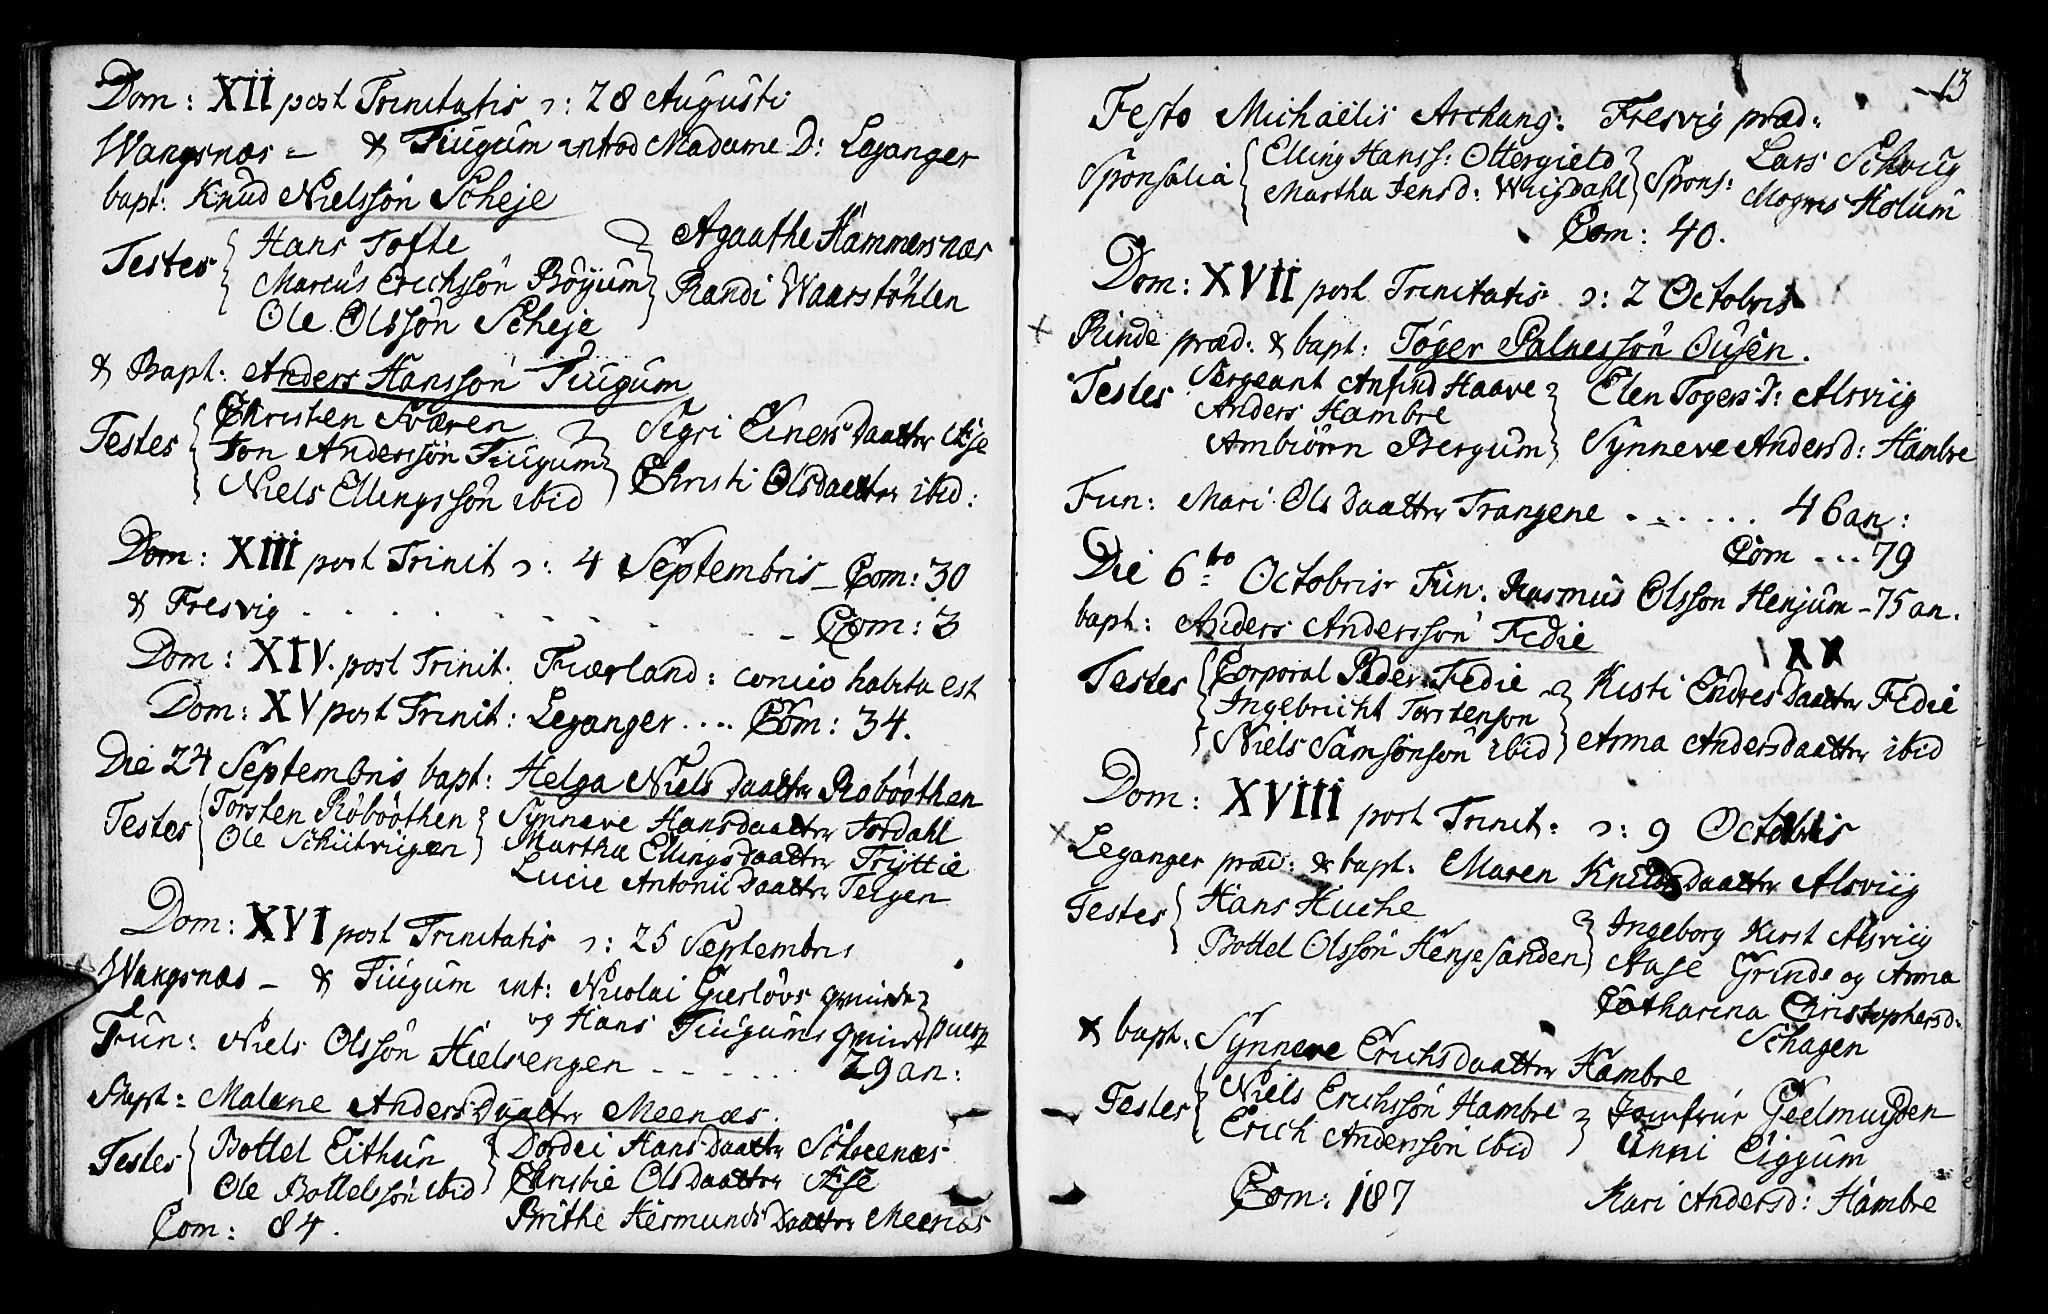 Dom: XII post Trinitatis ɔ: 28 Augusti
Wangsnæs = & Tiugum introd Madame D: Leganger
bapt: Knud Nielssøn Scheje
Testes Hans Tofte
Marcus Erichssøn Böÿum
Ole Olssøn Scheje
Agaathe Hammersnæs
Randi Waarstöhlen
& Bapt: Anders Hansson Tiugum
Testes Christen Sværen
Jon Anderssøn Tiugum
Niels Ellingssøn ibid
Sigri Einers Daatter Æse
Christi Olsdaatter ibid:
Dom: XIII post Trinit ɔ: 4 Septembris – Com: 30
& Fresvig . . . . . . . . – Com: 3
Dom: XIV. post Trinit. Fiærland: concio habita est
Dom: XV post Trinit: Leganger .... Com: 34.
Die 24 Septembris bapt: Helga Niels Daatter Röböothen
Testes Torsten Röböothen
Ole Schiitviigen
Synneve Hansdaatter Jordahl
Martha Ellingsdaatter Triottie
Lucie Antonii Daatter Teigen
Dom: XVI post Trinitatis ɔ: 25 Septembris
Wangsnæs – & Tiugum int: Nicolai Gierlövs qvinde
og Hans Tiugums qvinde puerp
Fun: Niels Olssøn Hielsengen - - . . . . 29 an:
Bapt: Malene Anders Daatter Meenæs.
Testes Bottel Eithun
Ole Bottelssøn ibid
Dordei Hans Daatter
Christie Ols Daatter Æse
Brithe Hermunds Daatter Meenæs
Com: 84.
13
Festo Michaëlis Archang: Fresvig præd:
Sponsalia Elling Hanss: Ottergield
Martha Jensd:
Spons: Lars
Mogens Holum
Com: 40.
Dom: XVII post Trinitatis ɔ: 2 Octobris
Rinde præd: & bapt: Töger Palnessøn Ousen.
Testes Sergeant Anfind Haave
Anders Hambre
Ambiörn Bergum
Elen Togersd: Alsviig
Synneve Andersd: Hambre
Fun: Mari Ols Daatter Trangene . – . . . . 46 an:
Com ... 79
Die 6to Octobris Fun: Rasmus Olsson Henjum – 75 an.
bapt: Anders Andersson Fedie
XX
Testes Corporal Peder Fedie
Ingebricht Torstenson
Niels Samsonson ibid
Kisti Endres Daatter Fedie
Anna Andersdaatter ibid
Dom: XVIII post Trinit: ɔ: 9 Octobris
Leganger præd: & bapt: Maren Knudsdaatter Alsviig
Testes Hans Huche
Bottel Olssøn Henjesanden
Ingeborg Kirst Alsviig
Aase Grinde og Anna
Catharina Christophersd:
Schagen
& bapt: Synneve Erichsdaatter Hambre
Testes Niels Erichssøn Hambre
Erich Anderssøn ibid
Jomfrur Geelmuÿden
Unni Eiggum
Kari Andersd: Hambre
Com: 187